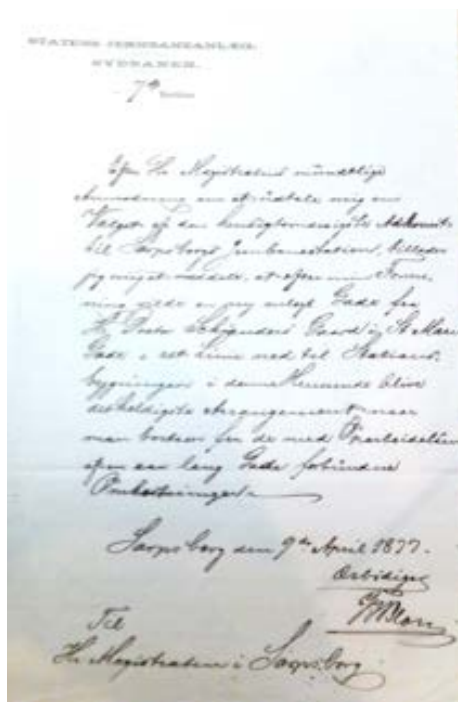 STATENS JERNBANEANLÆG.
SYDBANEN.
7de
Efter Hr Magistratens mundtlige
Anmodning om at udtale mig om
Valget af den hensigtsmæssigste Adkomst
til Sarpsborgs Jernbanestation, tillader
jeg mig at meddele, at efter min Formening
vilde en ny anlagt Gade fra
Hr Schjanders Gaard i St Marie
Gade i ret Linie ned til Stations-
bygningen i denne Henseende blive
det heldigste Arrangement naar
man bortseer fra de med Oparbeidelsen
af en saa lang Gade forbundne
Omkostninger.
Sarpsborg den 9de April 1877.
Ærbødigst
Til
Hr Magistraten i Sarpsborg.